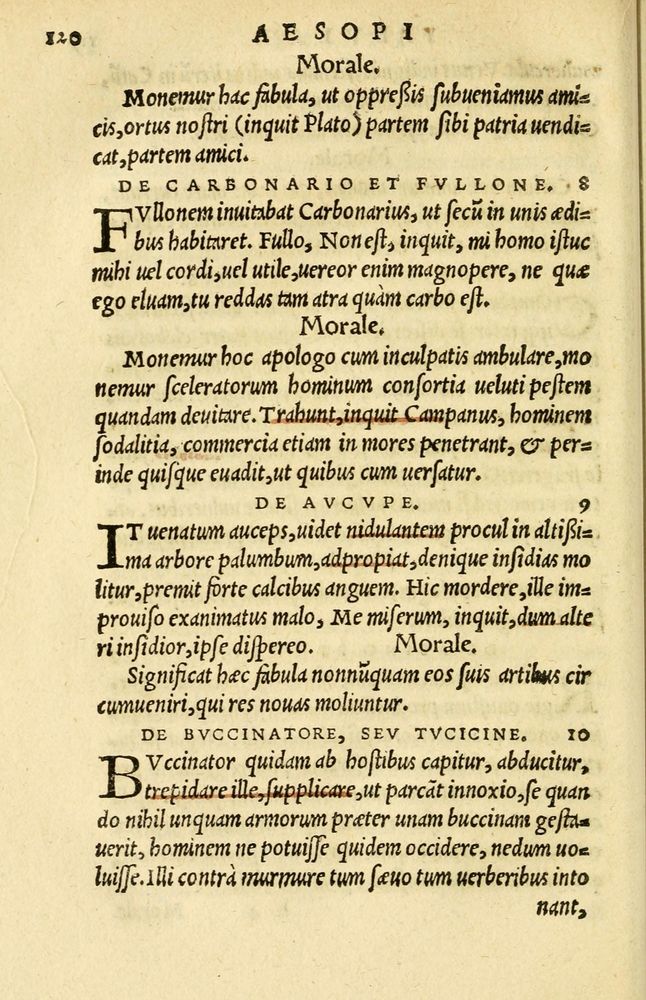 120 AESOPI
Morale.
Monemur hac fabula, ut oppreßis subueniamus ami=
cis, ortus nostri (inquit Plato) partem sibi patria uendi=
cat, partem amici.
DE CARBONARIO ET FVLLONE. 8
FVllonem inuitabat Carbonarius, ut secũ in unis ædi=
bus habitaret. Fullo, Non est, inquit, mi homo istuc
mihi uel cordi, uel utile, uereor enim magnopere, ne quæ
ego eluam, tu reddas tam atra quàm carbo est.
Morale.
Monemur hoc apologo cum inculpatis ambulare, mo
nemur sceleratorum hominum consortia ueluti pestem
quandam deuitare. Trahunt, inquit Campanus, hominem
sodalitia, commercia etiam in mores penetrant, & per=
inde quisque euadit, ut quibus cum uersatur.
DE AVCVPE. 9
IT uenatum auceps, uidet nidulantem procul in altißi=
ma arbore palumbum, adpropiat, denique insidias mo
litur, premit forte calcibus anguem. Hic mordere, ille im=
prouiso exanimatus malo, Me miserum, inquit, dum alte
ri insidior, ipse dispereo. Morale.
Significat hæc fabula nonnũquam eos suis artibus cir
cumueniri, qui res nouas moliuntur.
DE BVCCINATORE, SEV TVCICINE. 10
BVccinator quidam ab hostibus capitur, abducitur,
trepidare ille, supplicare, ut parcãt innoxio, se quan
do nihil unquam armorum præter unam buccinam gesta=
uerit, hominem ne potuisse quidem occidere, nedum uo=
luisse. Illi contrà murmure tum sæuo tum uerberibus into
nant,